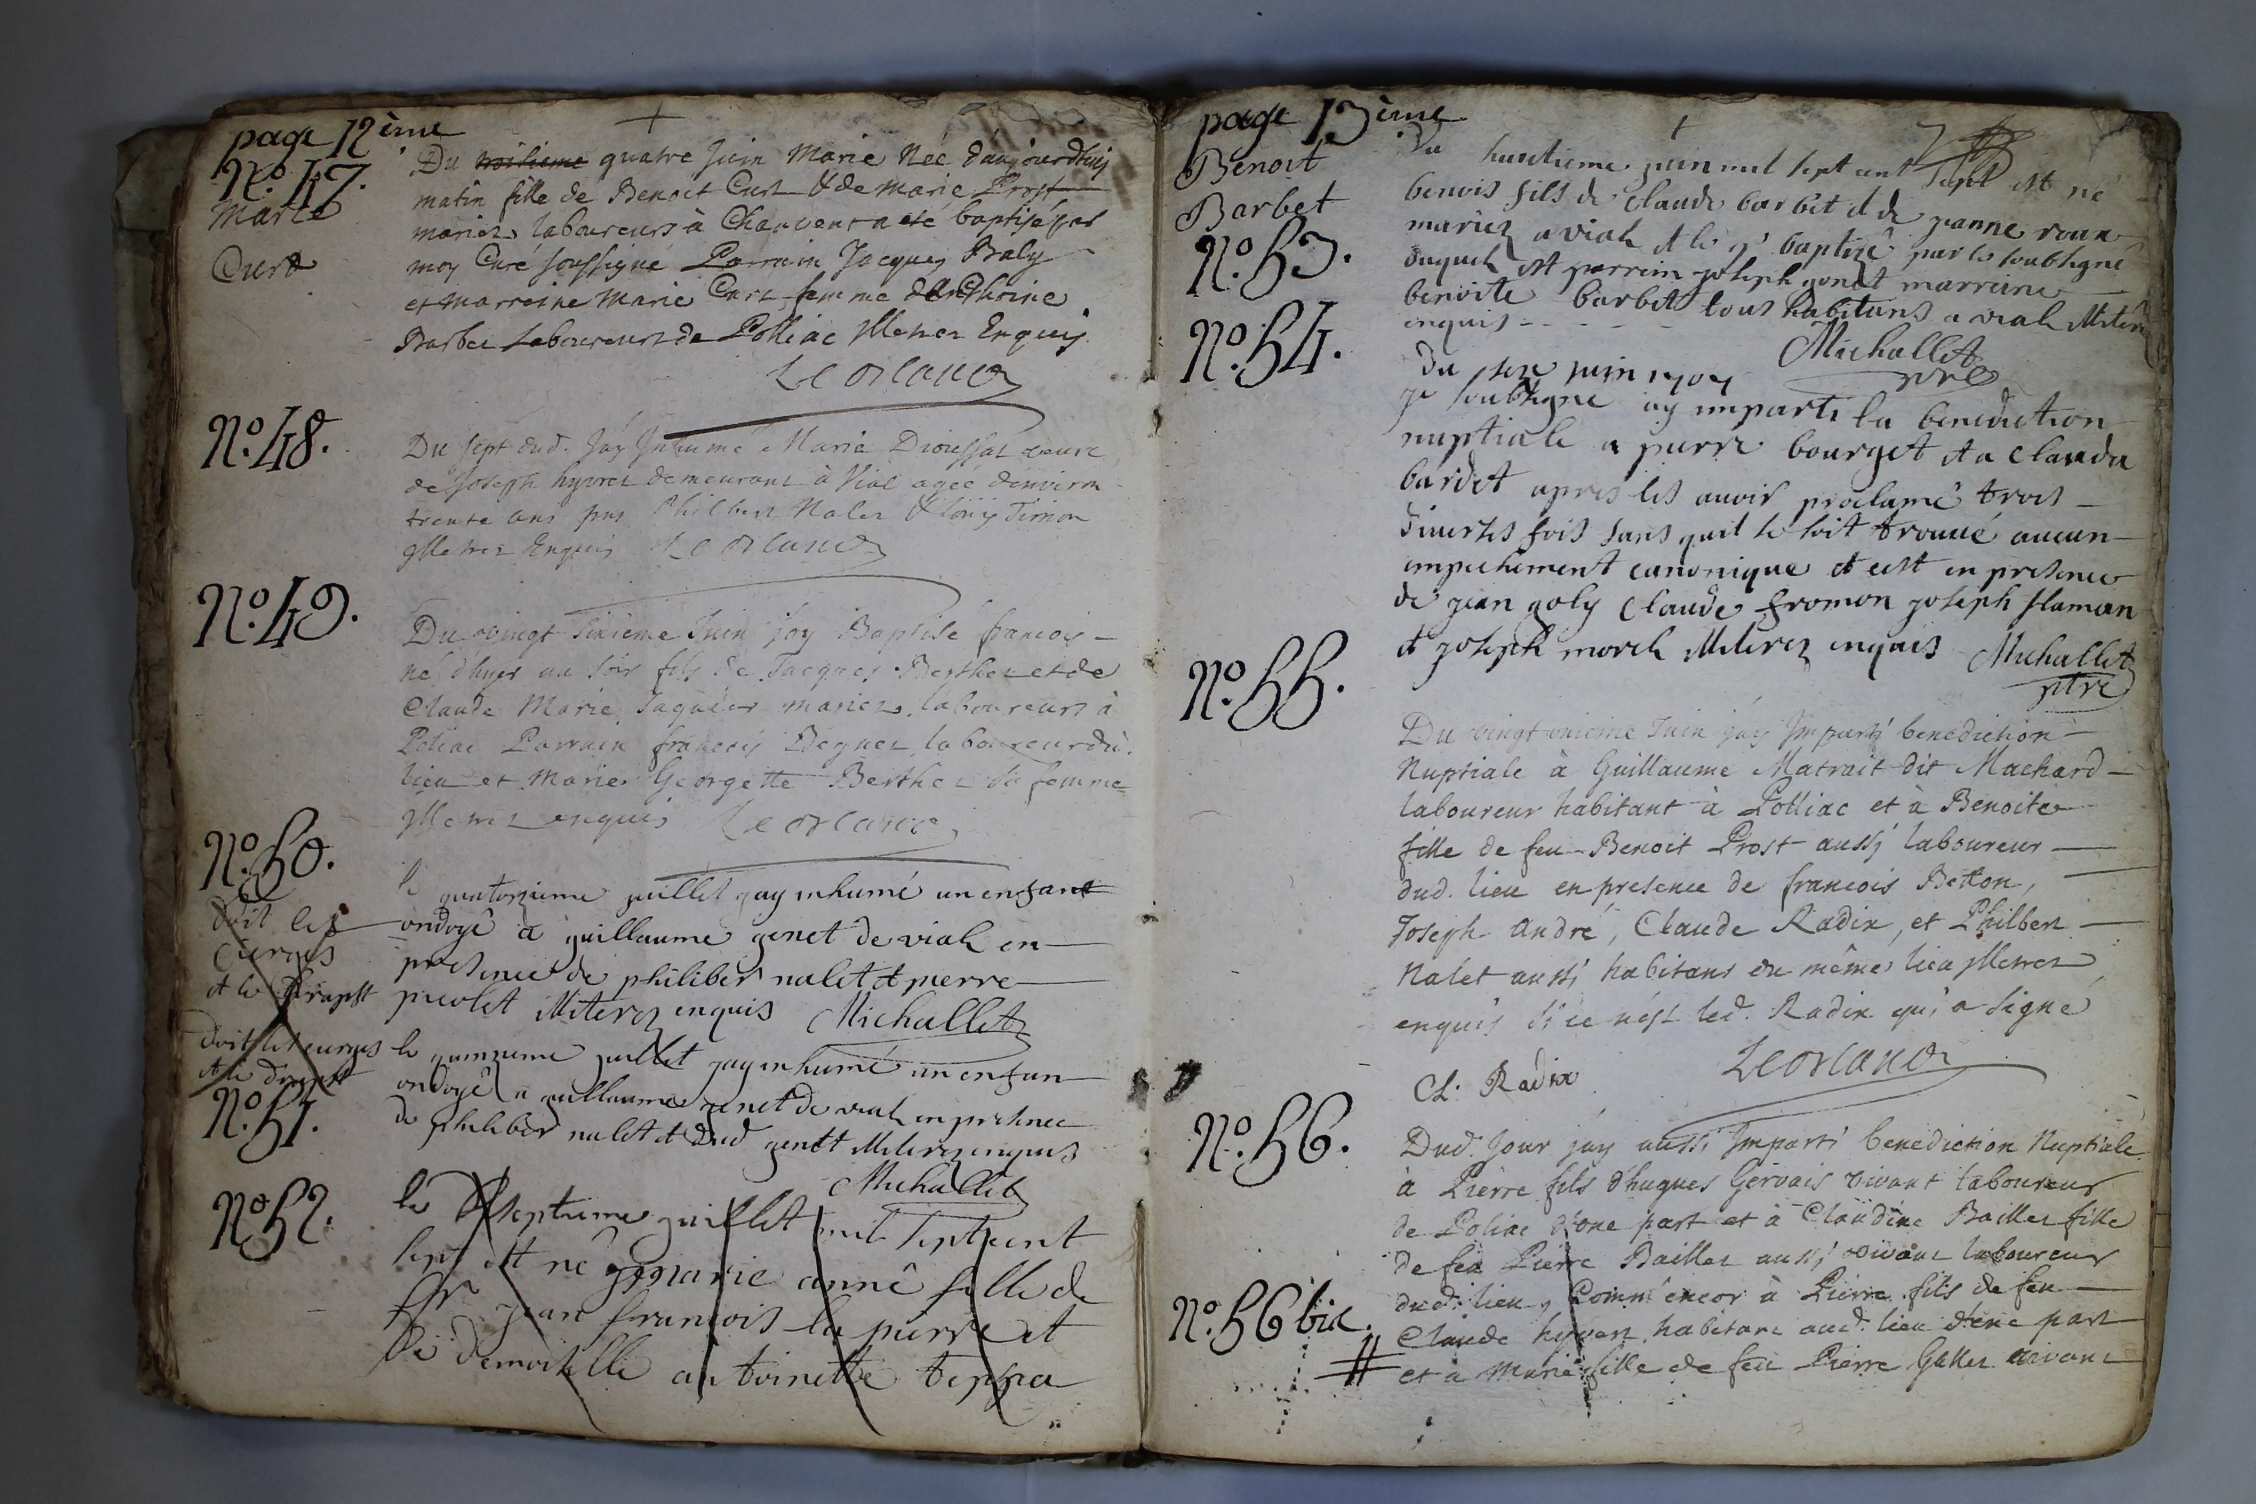 page 12ème
N.o 47.
Marie
Curt
Du troisieme quatre Juin Marie Née d'aujourdhuy
matin fille de Benoit Curt & de Marie Prost
mariez laboureurs à Chauvent a été baptisé par
moy Curé soussigné Parrain Jacques Baly
et marreine Marie Curt femme
Barbet Laboureurs de Polliac Illettrez Enquis
Leorlanet
N.o 48.
Du sept dud. J'ay Inhumé Marie veuve
de Joseph hyvret demeurant à Vial agée d'environ
trente ans pnt Philbert Nalet & Timon
Illettrez Enquis Leorlanet
N.o 49.
Du vingt sixieme Juin j'ay Baptisé francois
né d'hyer au soir fils de Jacques Berthet et de
Claude Marie mariez laboureurs à
Poliac Parrain francois laboureur dud.
lieu et Marie Georgette Berthet sa femme
Illettrez enquis Leorlanet
N.o 50.
doit les
cierges
et le drapt
le quatorzieme juillet jay inhumé un enfant
ondoyé a guillaume genet de vial en
presence de philiber nalet et pierre
picolet Illiterez enquis Michallet
doit les cierges
et le drapt
N.o 51.
le quinzieme juillet jay inhumé un enfan
ondoyé a guillaume genet de vial en presence
de philiber nalet et dud genet Illiterez enquis
Michallet
N.o 52.
le septieme juillet mil sept cent
sept est né marie anne fille de
sr jean francois la pierre et
de demoiselle antoinette teppa
page 13ème
Benoit
Barbet
N.o 53.
Du huictieme juin mil sept cent sept est né
benois fils de claude barbet et de janne roux
mariez a vial et le 9e baptizé par le soubsigné
duquel est parrein joseph gonet marreine
benoite barbet tous habitans a vial Illiterez
enquis
Michallet
ptre
N.o 54.
Du juin 1707
je soubsigne ay imparti la benediction
nuptiale a pierre bourget et a clauda
bardet apres les avoir proclamé trois
diverses fois sans quil se soit trouué aucun
empechement canonique et cest en presence
de jean goly claude fromon joseph flaman
et joseph morel Illiterez enquis Michallet
ptre
N.o 55.
Du vingt unieme Juin j'ay Imparti benediction
Nuptiale à Guillaume Matrait dit Machard
laboureur habitant à Polliac et à Benoite
fille de feu Benoit Prost aussi laboureur
dud. lieu en presence de francois Betton,
Joseph André, Claude Radix, et Philbert
Nalet aussi habitans du même lieu Illettrez
enquis si ce n'est led. Radix qui a signé
Cl. Radix
Leorlanet
N.o 56.
Dud. Jour j'ay aussi Imparti benediction Nuptiale
à Pierre fils d'hugues Gervais vivant laboureur
de Poliac d'une part et à Claudine Baillet fille
de feu Pierre Baillet aussi vivant laboureur
dud. lieu, Comm'encor à Pierre fils de feu
N.o 56 bis.
Claude hyvert habitant aud. lieu d'une part
et à Marie fille de feu Pierre Gallet vivant